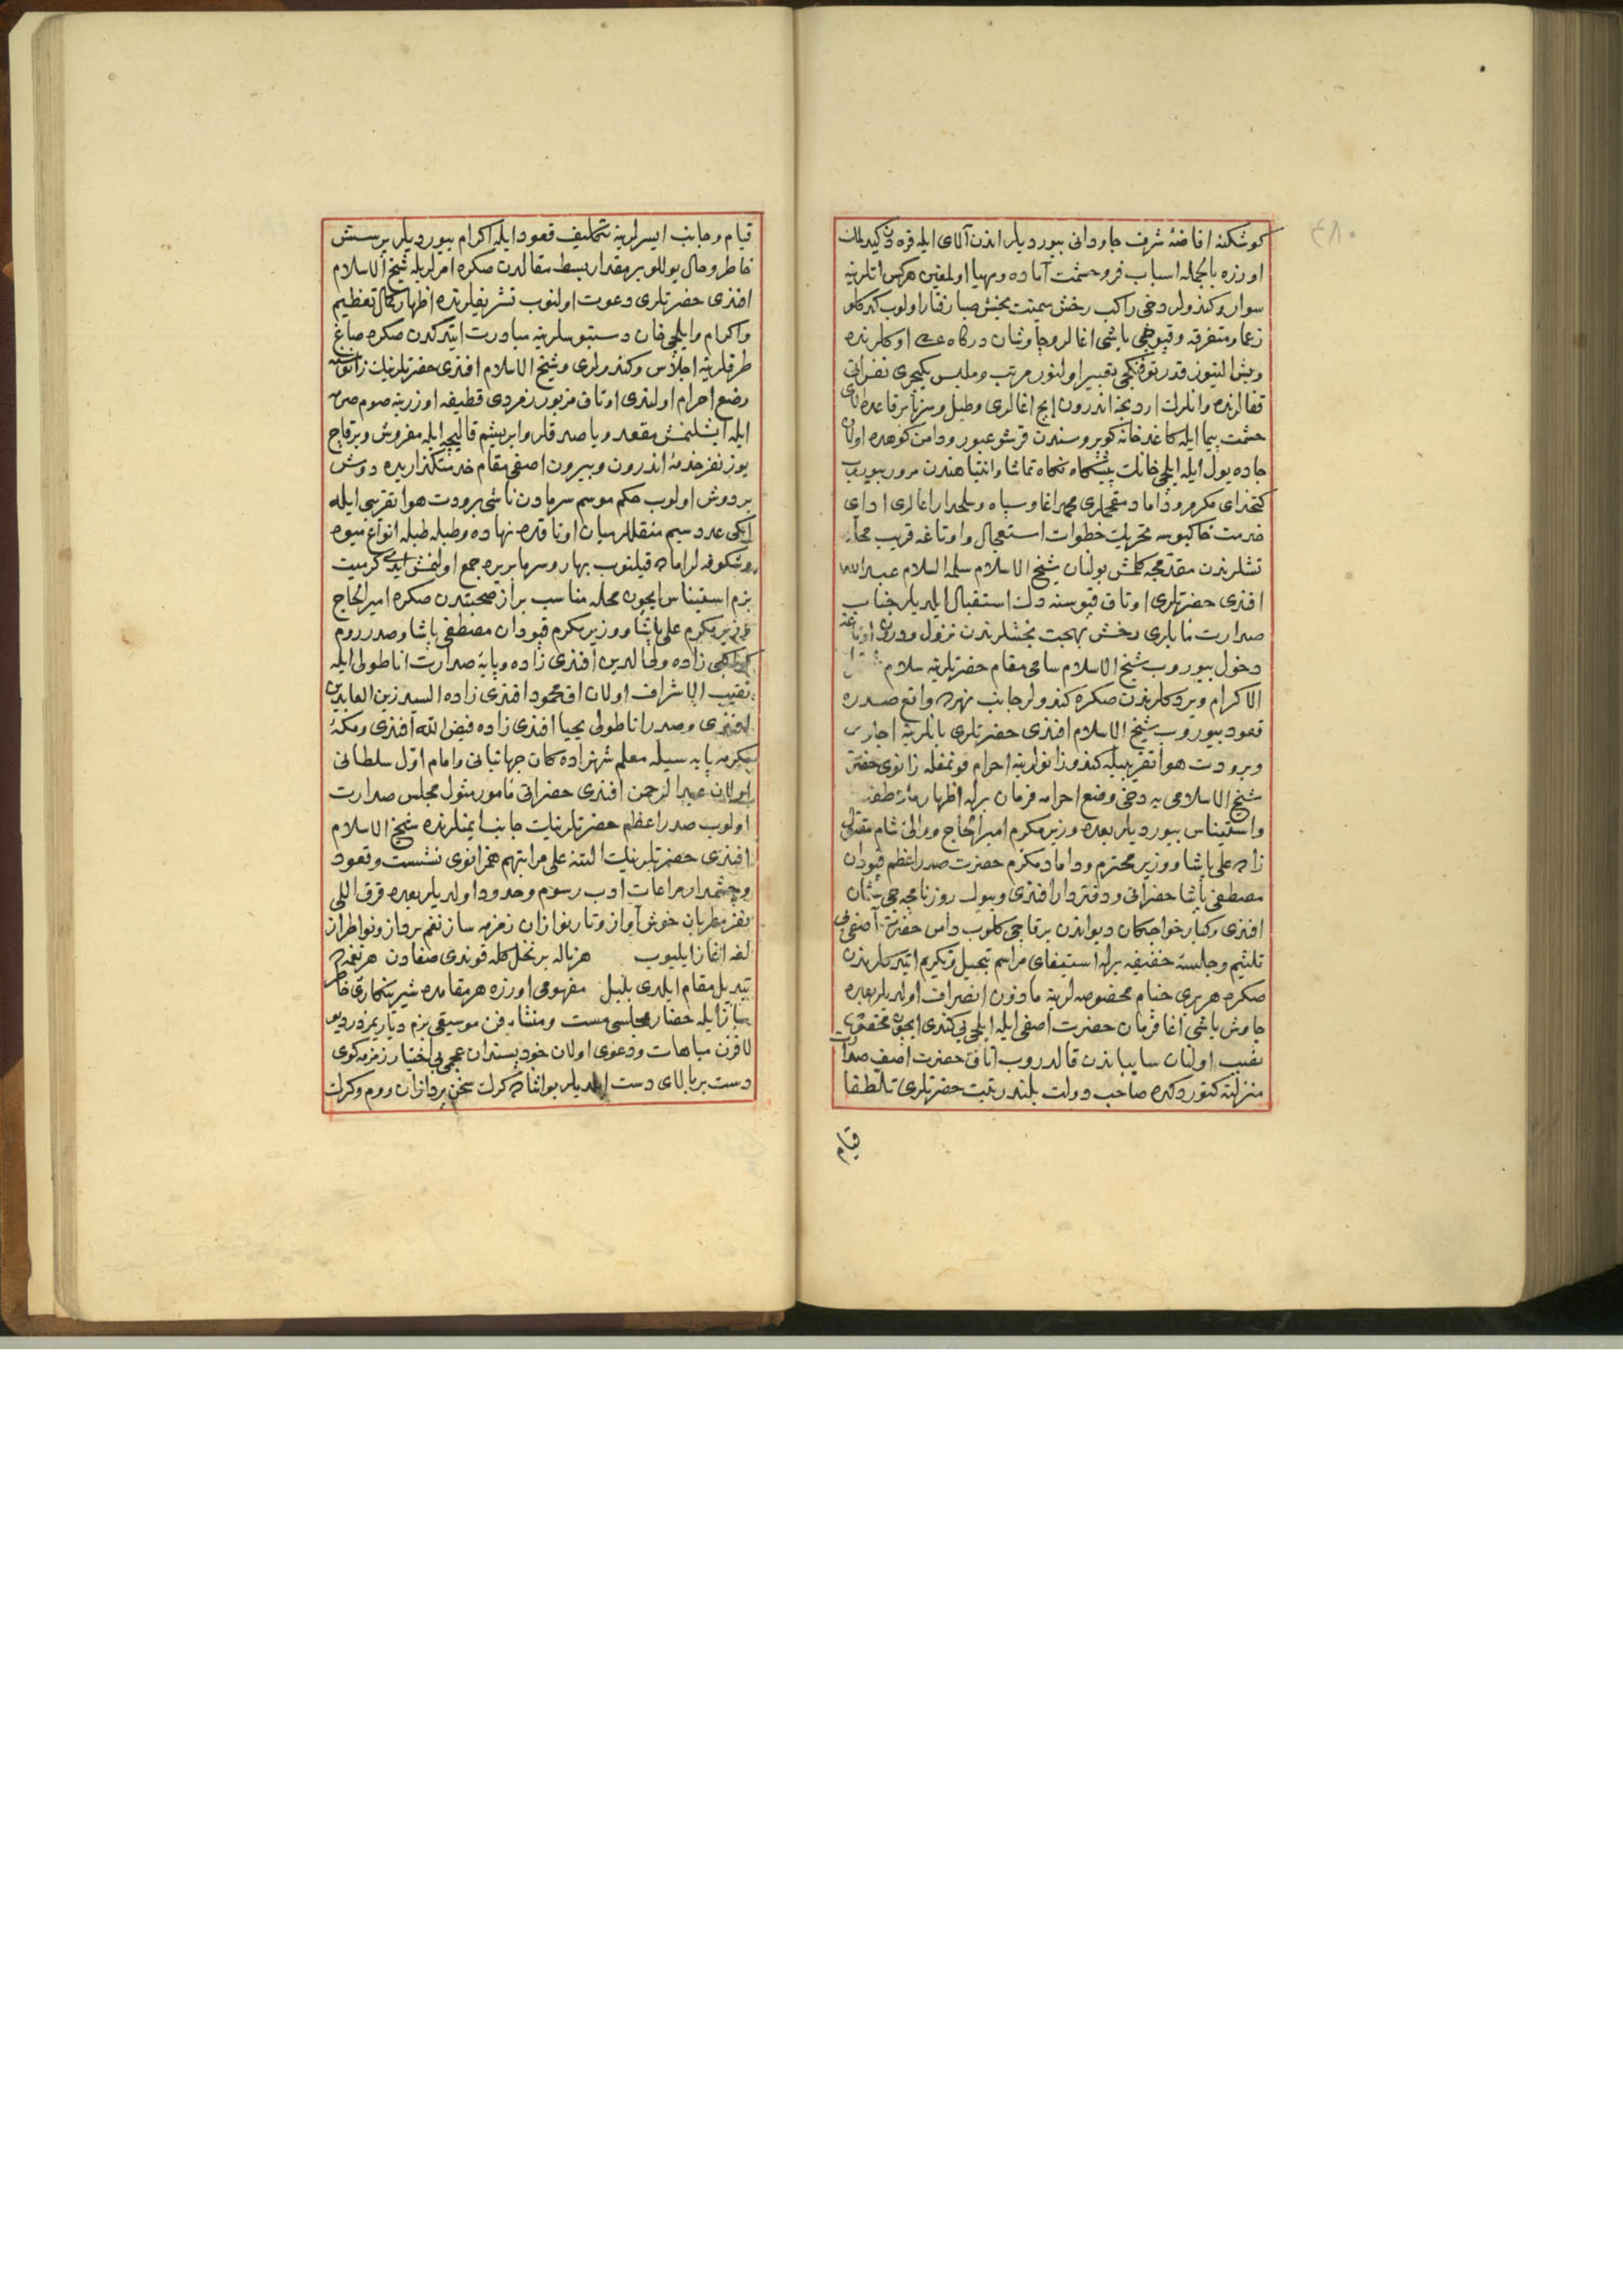 ٤٨٠
كوشكنه افاضهٔ شرف جاودانى بيورديلر اندن آلاى ايله
اوزره بالجمله اسباب فر وحشمت آماده ومهيا اولمغين هركس اتلرينه
سوار وكندولر دخى راكب رخش ميمنت بخش صبا رفتار اولوب
زعما ومتفرقه وقپوجى باشى اغالر وچاوشان دركاه اوكلرنده
وبش التيوز قدر توفنكچى تعبير اولنور مرتب وملبس يكيچرى نفراتى
قفالرنده وانلرك اردينجه اندرون ايچ اغالرى وطبل وسرنا برقاعدهٔ آلاى
حشمت پيما ايله كاغدخانه كوپروسندن قرشو عبور ودامن كوهده اولان
جاده يول ايله ايلچى خانك پيشكاه نكاه تماشا وانتباهندن مرور بيوروب
كتخداى مكرم وداماد محمد اغا وسپاه وسلحدار اغالرى اداى
خدمت خاكبوسه تحريك خطوات استعجال واوتاغه قريب محلده
مقدمجه كلمش بولنان شيخ الاسلام سلمه السلام عبد الله
افندى حضرتلرى اوتاق قپوسنه دك استقبال ايلديلر جناب
صدارت مابلرى رخش بهجت بخشلرندن نزول ودرون اوتاغه
دخول بيوروب شيخ الاسلام سامى مقام حضرتلرينه سلام
الاكرام ويردكلرندن صكره كندولر جانب واقع صدره
قعود بيوروب شيخ الاسلام افندى حضرتلرى يانلرينه اجلاس
وبرودت هوا تقريبيله كندو زانولرينه احرام قونمغله زانوى حضرت
شيخ الاسلامى يه دخى وضع احرامه فرمان برله اظهار
واستيناس بيورديلر بعده وزير مكرم امير الحاج ووالئ شام مقتول
زاده على پاشا ووزير محترم وداماد مكرم حضرت صدر اعظم قپودان
مصطفى پاشا حضراتى ودفتردار افندى وبيوك روزنامچه جى
افندى وكبار خواجكان ديواندن برقاچى كلوب دامن حضرت آصفى يى
تلثيم وجلسهٔ خفيفه برله استيفاى مراسم تبجيل وتكريم ايتدكلرندن
صكره هر برى خيام مخصوصه لرينه مأذون انصراف اولديلر بعده
چاوش باشى اغا فرمان حضرت اصفى ايله ايلچى بى كندى ايچون مخصوص
نصب اولنان سايباندن قالدروب اتاق حضرت اصف صدارت
منزلته كتوردكده صاحب دولت بلند رتبت حضرتلرى تلطفا
قيام
قيام وجانب ايسرلرينه تكليف قعود ايله اكرام بيورديلر پرسش
خاطر وحال يوللو بر مقدار بسط مقالدن صكره امرلريله شيخ الاسلام
افندى حضرتلرى دعوت اولنوب تشريفلرنده اظهار كمال تعظيم
واكرام وايلچى خان دستبوسلرينه مبادرت ايتدكدن صكره صاغ
طرفلرينه اجلاس وكندولرى وشيخ الاسلام افندى حضرتلرينك
وضع احرام اولندى اوتاق مزبور زمردى قطيفه اوزرينه صوم صرمه
ايله ايشلنمش مقعد ويا صدقلر وابريشم قاليچه ايله مفروش وبرقاچ
يوز نفر خدمهٔ اندرون وبيرون اصفى مقام خدمتكذاريده دوش
بردوش اولوب حكم موسم سرمادن ناشى برودت هوا تقريبى ايله
ايكى عدد سيم منقللر ميان اوتاقده نهاده وطبله طبله انواع ميوه
وشكوفه لر اماده قيلنوب بهار وسرما بريره جمع اولنمش ايدى كرميت
بزم استيناس ايچون محله مناسب براز صحبتدن صكره امير الحاج
وزير مكرم على پاشا ووزير مكرم قپودان مصطفى پاشا وصدر روم
زاده ولى الدين افندى زاده وپايهٔ صدارت اناطولى ايله
نقيب الاشراف اولان محمود افندى زاده السيد زين العابدين
افندى وصدر اناطولى يحيا افندى زاده فيض الله افندى ومكهٔ
مكرمه پايه سيله معلم شهزاده كان جهانبانى وامام اول سلطانى
اولان عبد الرحمن افندى حضراتى مأمور مثول مجلس صدارت
اولوب صدر اعظم حضرتلرينك جانب ايمنلرنده شيخ الاسلام
افندى حضرتلرينك التنه على مراتبهم همزانوى نشست وقعود
وچشمدار مراعات ادب رسوم وحدود اولديلر بعده قرق اللى
نفر مطربان خوش آواز وتار نوازان زمزمه ساز نغم پرداز
آغاز ايليوب هر ناله بر نخل كله قوندى صفادن هر نغمه ده
تبديل مقام ايلدى بلبل مفهومى اوزره هر مقامده شيرينكارئ
ساز ايله حضار مجلسى مست ومنشاء فن موسيقى بزم ديار يمزدر ديو
لافزن مباهات ودعوى اولان خود پسندان عجمى بى اختيار زمزمه كوى
دست بر بالاى دست ايلديلر بو اثناده كرك سخن پردازان روم وكرك